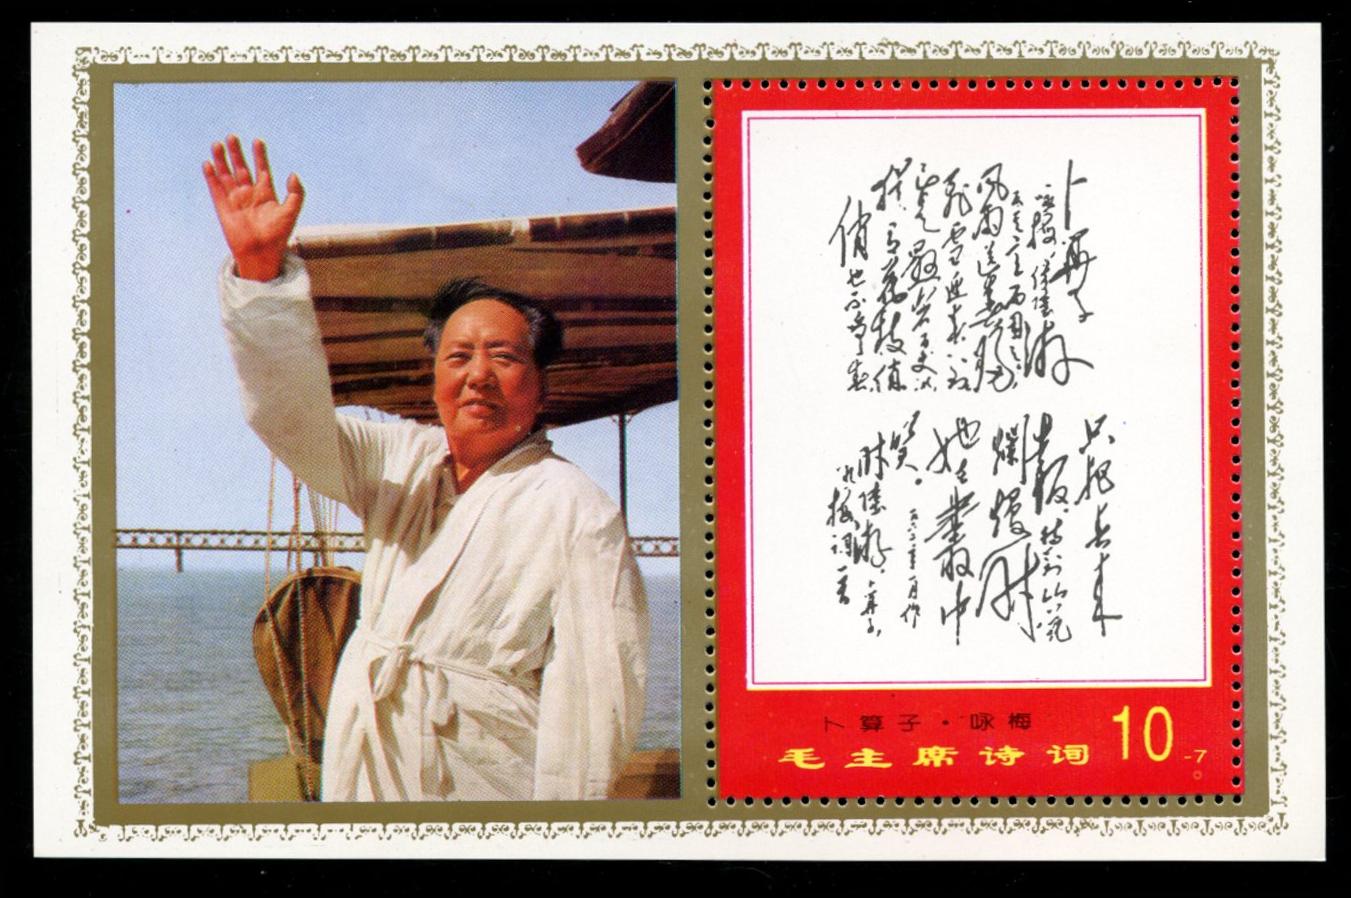 卜算子
咏梅 读陆游
反其意而用之
风雨送春归
飞雪迎春到 已
是悬崖百丈冰
犹有花枝俏
俏也不争春
只把春来
报 待到山花
烂漫时
她在丛中
笑。
陆游 卜算子
咏梅词一首
卜算子·咏梅
毛主席诗词 10
-7